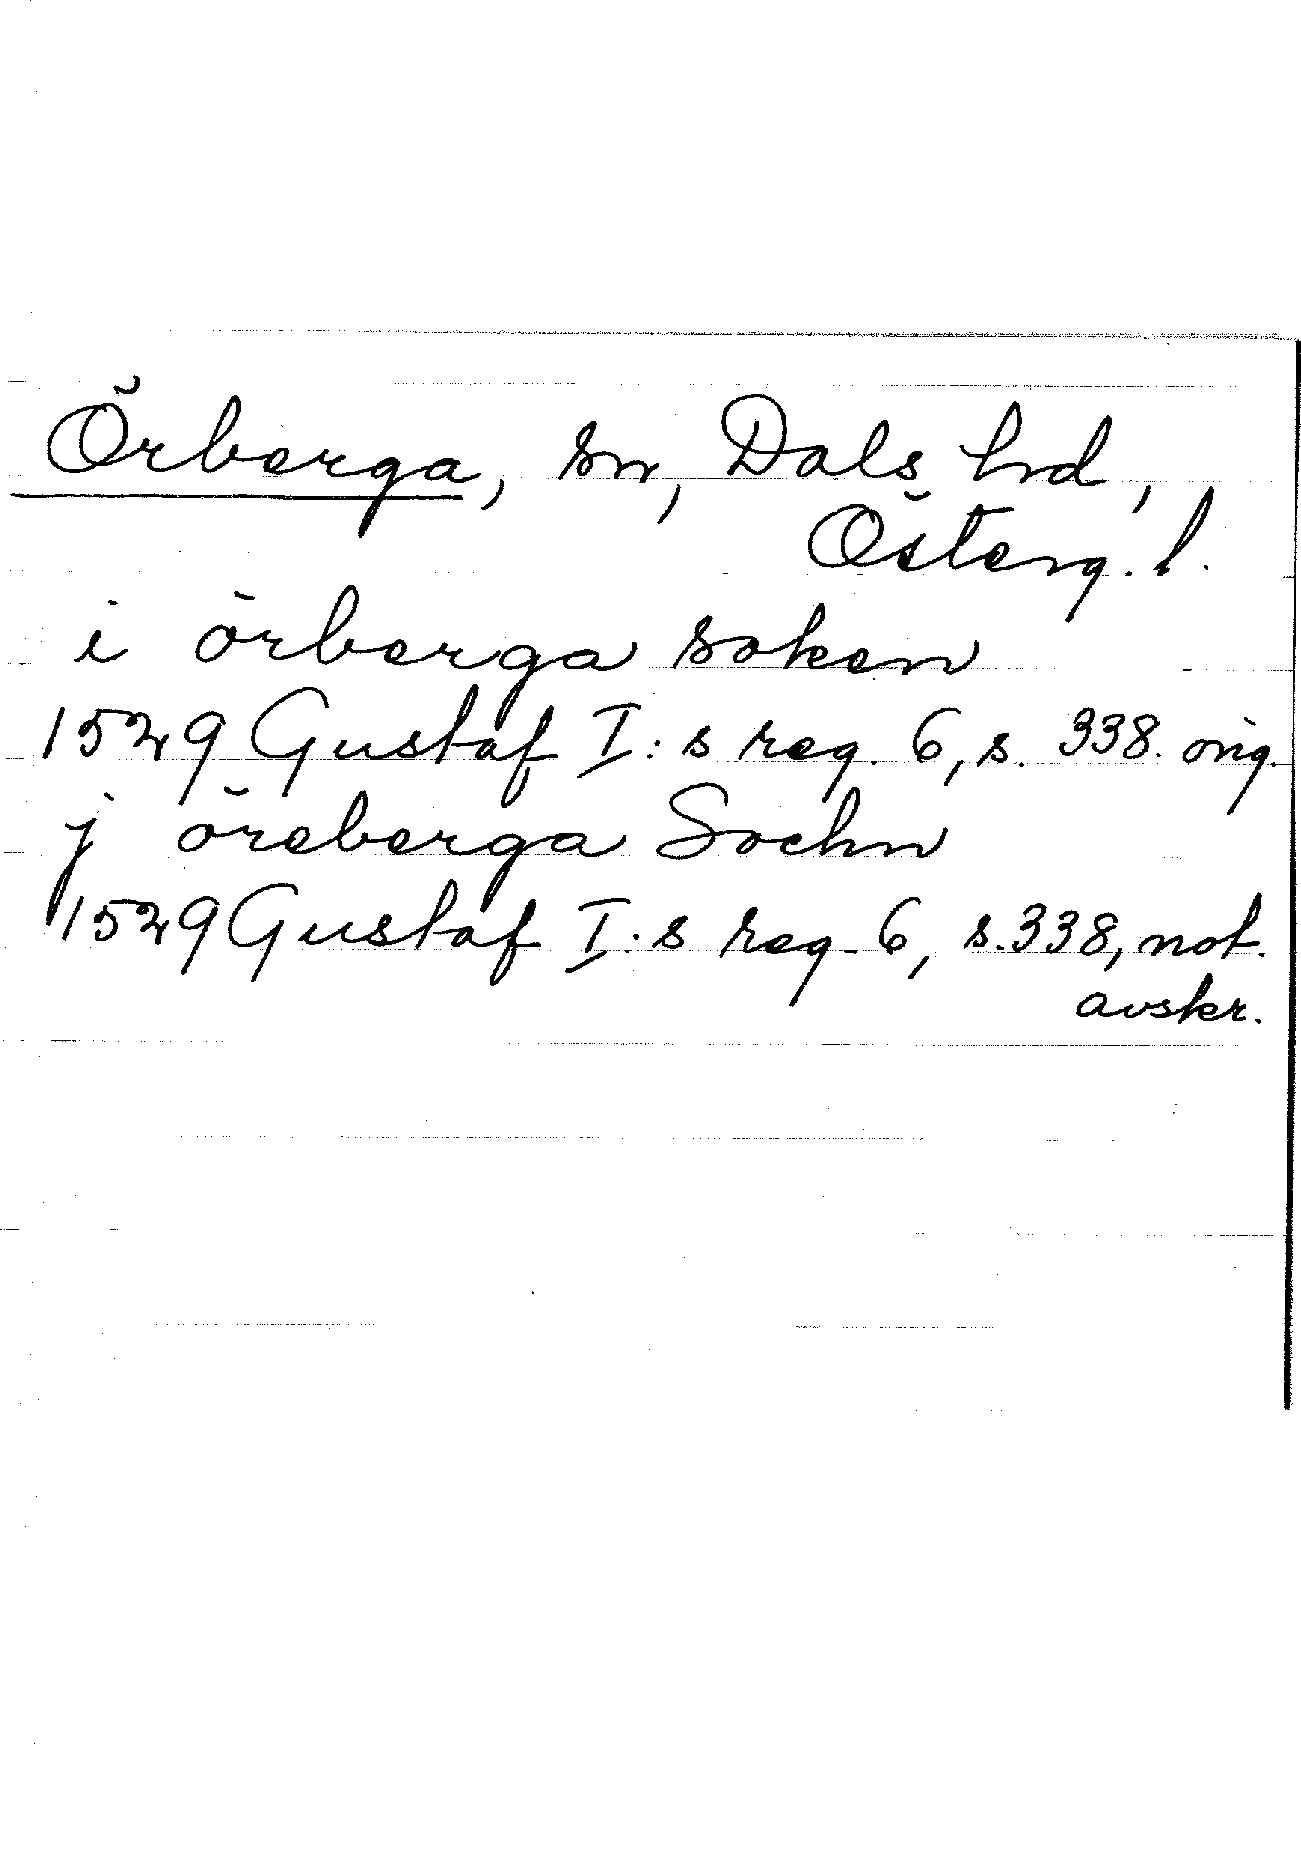 Örberga, sn, Dals hd,
Österg. l.
i örberga soken
1529 Gustaf I:s reg. 6, s. 338. orig.
j öreberga Sochn
1529 Gustaf I.s reg. 6, s. 338, not.
avskr.